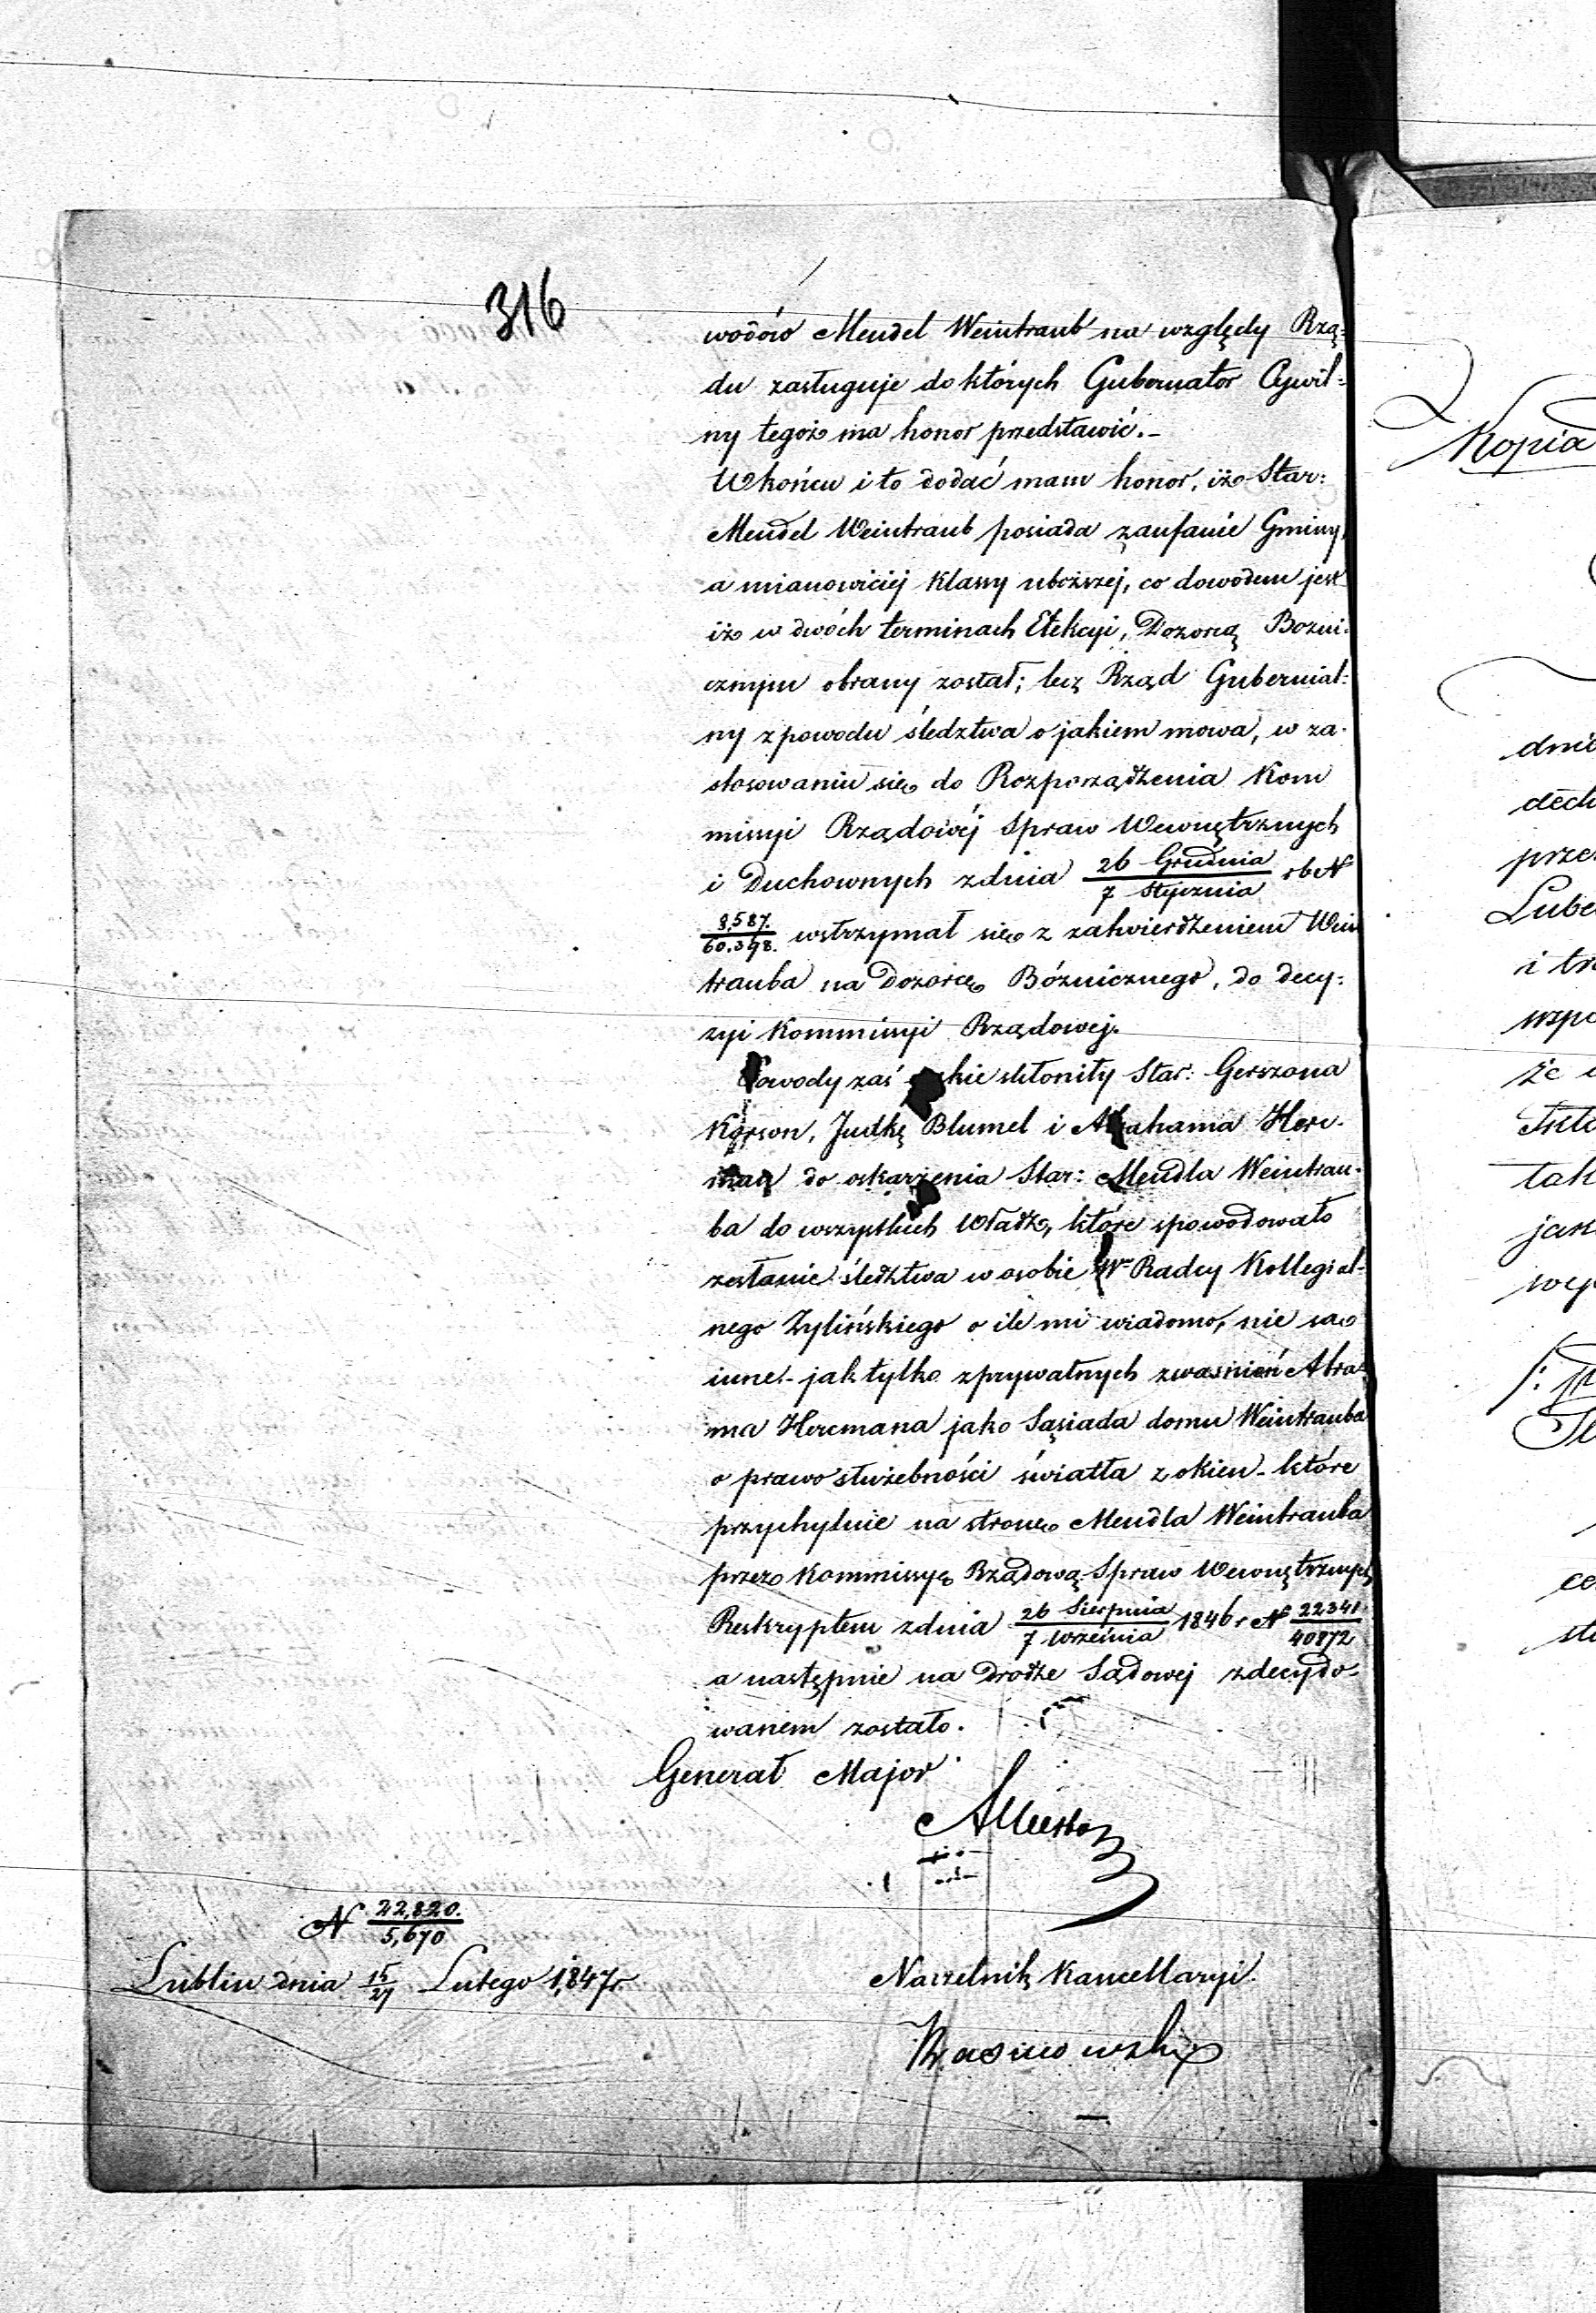 316
wodów Mendel Weintraub na względy Rzą=
du zasługuje do których Gubernator Cywil=
ny tegoż ma honor przedstawić.-
Wkońcu i to dodać mam honor, iż Star:
Mendel Weintraub posiada zaufanie Gminy,
a mianowiciej Klassy uboższej, co dowodem jest
iż w dwóch terminach Elekcyi, Dozorcą Bozni-
cznym obrany został; lecz Rząd Gubernial=
ny z powodu śledztwa o jakiem mowa, w za-
stosowaniu się do Rozporządzenia Kom
missyi Rządowéj Spraw Wewnętrznych
i Duchownych z dnia 26 Grudnia / 7 Stycznia rb N
8,587. / 60.398. wstrzymał się z zatwierdzeniem Wein
trauba na Dozorcę Bóżnicznego, do decy=
zyi Kommissyi Rządowej.
Powody zaś jakie skłoniły Star: Gerszona
Korson, Judkę Blumel i Abrahama Herc-
man do oskarzenia Star: Mendla Weintrau-
ba do wszystkich Władz, które spowodowało
zesłanie śledztwa w osobie W Radcy Kollegial-
nego Zylińskiego o ile mi wiadomo, nie są
inne - jak tylko z prywatnych zwasnień Abra-
ma Hercmana jako Sąsiada domu Weintrauba
o prawo służebności światła z okien - które
przychylnie na stronę Mendla Weintrauba
przez Kommissyę Rządową Spraw Wewnętrznych
Reskryptem z dnia 26 Sierpnia / 7 Września 1846 r N 22341 / 40872
a następnie na Drodze Sądowej zdecydo-
wanem zostało.
Generał Major
N 22,820. / 5,670
Lublin dnia 15/27 Lutego 1,847 r.
Naczelnik Kancellaryi.
Kopia